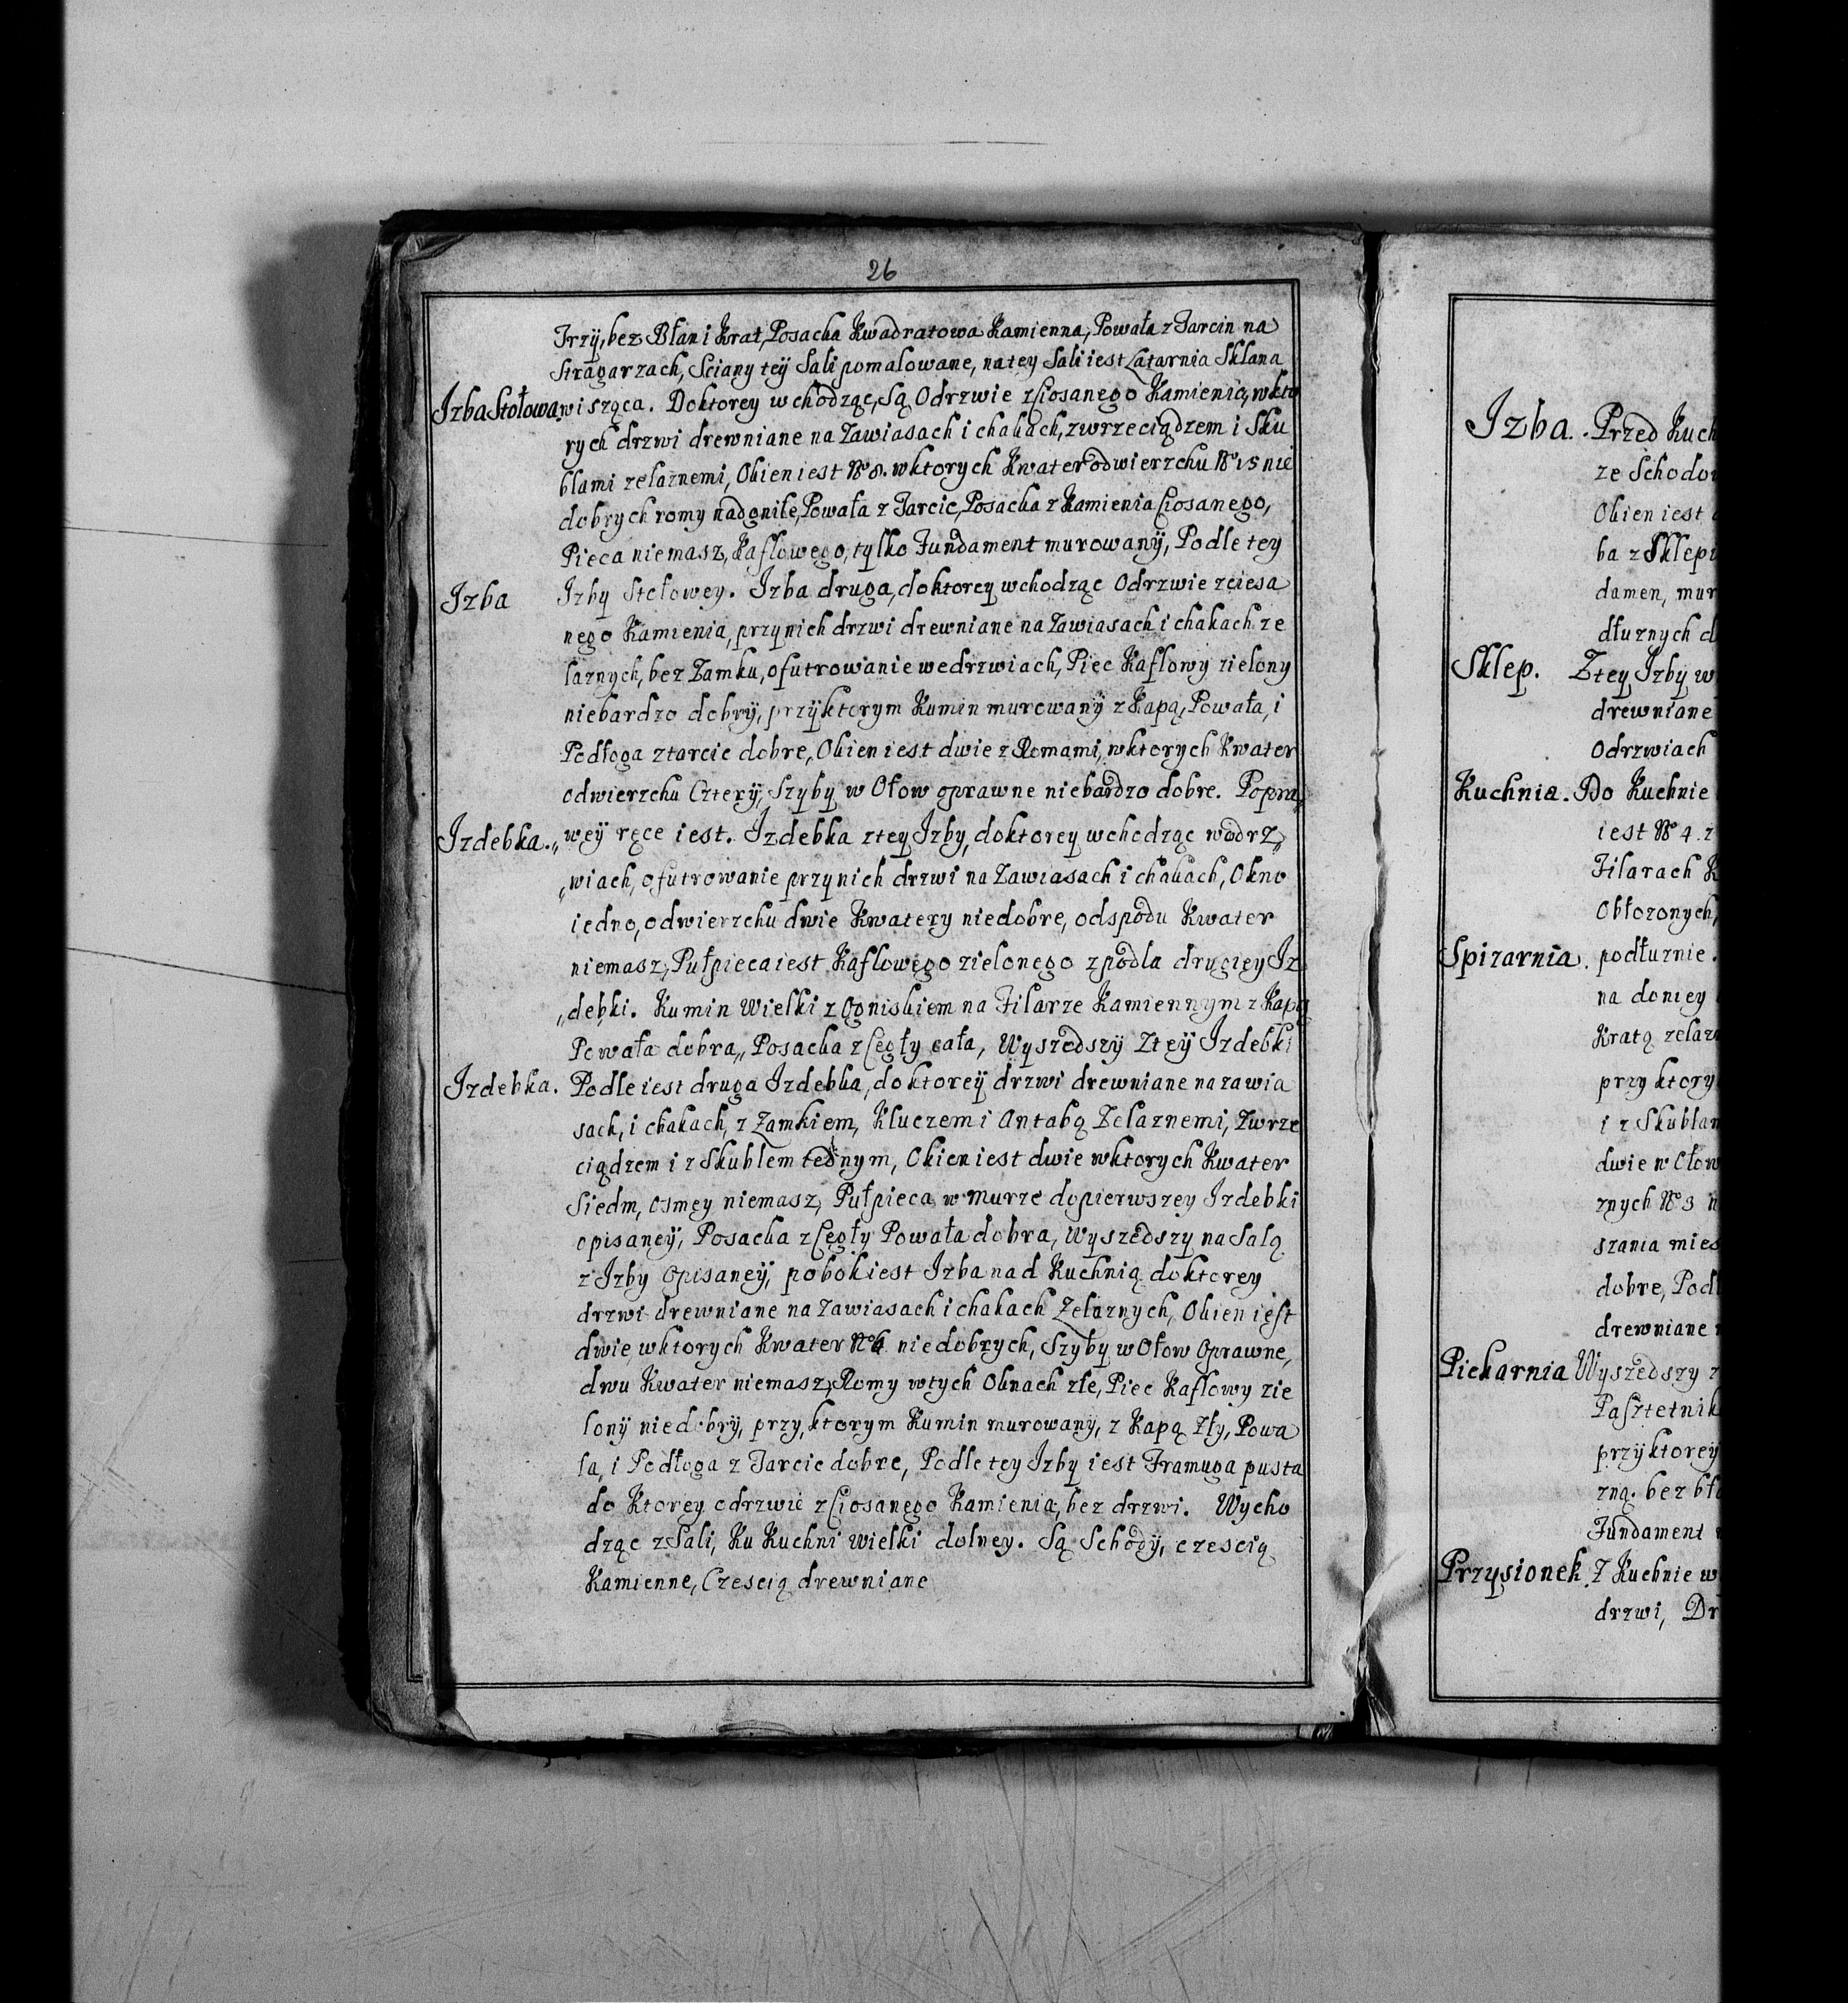 26
Trzÿ, bez Błan i Krat, Posacka Kwadratowa Kamienna, Powała z Tarcin na
Stragarzach, Sciany teÿ Sali pomalowane, na tey Sali iest Latarnia Sklana
Izba Stołowa wisząca. Do ktorey wchodząc, Są Odrzwie z Ciosanego Kamienia, w kto
rych drzwi drewniane na Zawiasach i chakach, z wrzeciądzem i Sku
blami zelaznemi, Okien iest No 8. w ktorych Kwater od wierzchu No 15 nie
dobrych romy nadgniłe, Powała z Tarcic, Posacka z Kamienia Ciosanego,
Pieca niemasz, Kaflowego, tylko Fundament murowanÿ, Podle tey
Izba Izby Stołowey. Izba druga, do ktorey wchodząc Odrzwie z ciesa
nego Kamienia, przy nich drzwi drewniane na Zawiasach i chakach ze
laznych, bez Zamku, ofutrowanie we drzwiach, Piec Kaflowy zielony
niebardzo dobrÿ, przÿ ktorym Kumin murowanÿ z Kapą, Powała, i
Podłoga z tarcic dobre, Okien iest dwie z Romami, w ktorych Kwater
od wierzchu Czterÿ, Szyby w Ołow oprawne niebardzo dobre. Po pra„
Izdebka. „weÿ ręce iest. Izdebka z tey Izby, do ktorey wchodząc w odrz„
„wiach, ofutrowanie przy nich drzwi na Zawiasach i chakach, Okno
iedno, od wierzchu dwie Kwatery niedobre, od spodu Kwater
niemasz, Puł pieca iest Kaflowego zielonego z podla drugiey Iz
„debki. Kumin Wielki z Ogniskiem na Filarze Kamiennym z Kapą
Powała dobra„ Posacka z Cegły cała, Wyszedszÿ Z teÿ Izdebki
Izdebka. Podle iest druga Izdebka, do ktoreÿ drzwi drewniane na zawia
sach, i chakach, z Zamkiem, Kluczem i Antabą Zelaznemi, Z wrze
ciądzem i z Skublem iednym, Okien iest dwie w ktorych Kwater
Siedm, osmey niemasz, Puł pieca w murze do pierwszey Izdebki
opisaneÿ, Posacka z Cegły Powała dobra, Wyszedszy na Salą
z Izby Opisaneÿ, pobok iest Izba nad Kuchnią do ktorey
drzwi drewniane na Zawiasach i chakach Zelaznych, Okien iest
dwie, w ktorych Kwater No 6 niedobrych, Szyby w Ołow Oprawne,
dwu Kwater niemasz, Romy w tych Oknach złe, Piec Kaflowy zie
lonÿ niedobrÿ, przy ktorym Kumin murowany, z Kapą Zły, Powa
ła, i Podłoga z Tarcic dobre, Podle tey Izby iest Framuga pusta
do Ktorey odrzwie z Ciosanego Kamienia, bez drzwi. Wycho
dząc z Sali, Ku Kuchni Wielki dolney. Są Schodÿ, czescią
Kamienne, Czescią drewniane
Izba. Przed Kuch
ze Schodow
Okien iest
ba z Sklepi
damen, mur
dłuznych d
Sklep. Z tey Izby w
drewniane
Odrzwiach
Kuchnia. Do Kuchnie
iest No 4. z
Filarach K
Obłozonych,
Spizarnia. podłuznie.
na do niey
Kratą zelazn
przy ktory
i z Skublam
dwie w Ołow
znych No 3 n
szania mies
dobre, Podł
drewniane
Piekarnia Wyszedszy z
Pasztetnik
przÿ ktoreÿ
zną. bez bła
Fundament
Przysionek. Z Kuchnie w
drzwi, Dr